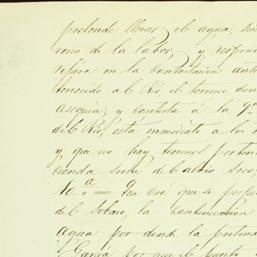 pretende llevar el agua, sin
reno de la labor; y respon
refiere en la contestacion ante
conocido al Rio el terreno don
asequia; y contesta á la 9ª
del Rio, está inmediato á los
y que no hay terreno perten
cienda sirva de caldio seco,
10.ª = Que
del Sobaco, la continuacion
agua por donde la pretende
Garcia por que el punto